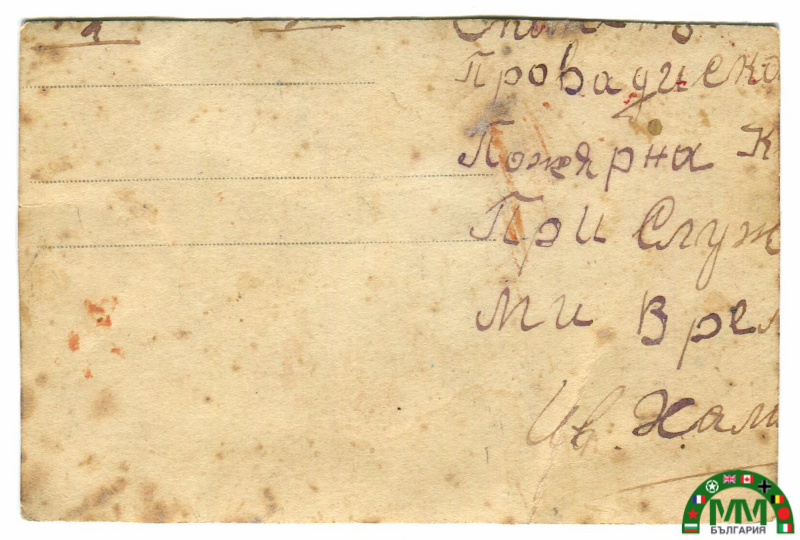 Провадиско
Пожярна К
При Служ
ми Врем
Цв. Хали
ММ
БЪЛГАРИЯ